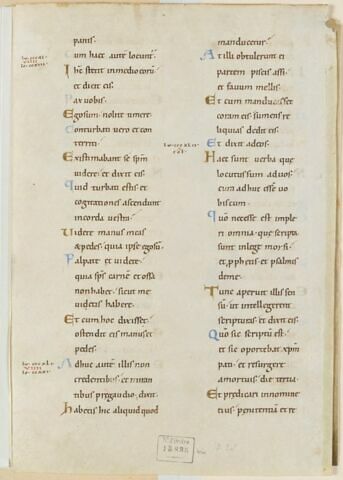 panis.
Cum haec aute locunt.
Ihc stetit inmedio eoru
et dicit eis.
Pax vobis.
Ego sum. nolite timere.
Conturbati vero et con
territi.
Existimabant se spm
videre. et dixit eis.
Quid turbati estis et
cogitationes ascendunt
incorda vestra.
Videte manus meas
& pedes. quia ipse ego sum.
Palpate et videte.
quia sps carne et ossa
non habet. sicut me
videtis habere.
Et cum hoc dixisset.
ostendit eis manus et
pedes.
Adhuc aute illis non
credentibus et miran
tibus pregaudio. dixit.
Habetis hic aliquid quod
manducetur.
At illi obtulerunt ei
partem piscis assi.
et favum mellis.
Et cum manducasset
coram eis. sumens re
liquias dedit eis.
Et dixit adeos.
Haec sunt verba que
locutus sum advos
cum adhuc esse vo
biscum.
Quo necesse est imple
ri omnia. que scripta
sunt inlege moysi.
et pphetis et psalmis
deme.
Tunc aperuit illis sen
su. ut intellegerent
scripturas. et dixit eis.
Quo sic scriptu est.
et sic oportebat xpm
pati. et resurgere
amortuis. die tertia.
Et predicari innomine
eius penitentia et re